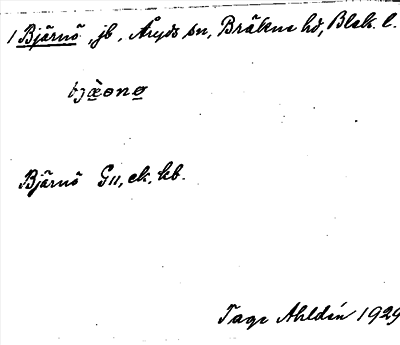 1 Björnö, jb, Åryds sn, Bräkne hd, Blek. l.
bjö̀ɘnø
Björnö G11, ek, kb.
Tage Ahldén 1929